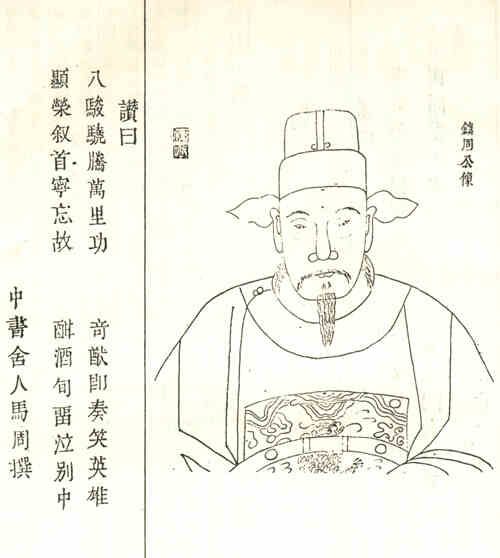 鎮周公像
讚曰
八駿驍騰萬里功 竒猷卽奏笑英雄
顯榮叙首寧忘故 酣酒旬畱泣别中
中書舍人馬周撰